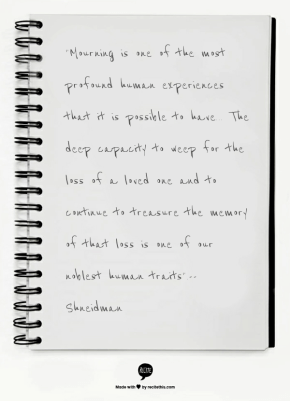 "Mourning is one of the most
profound human experiences
that it is possible to have. The
deep capacity to weep for the
loss of a loved one and to
continue to treasure the memory
of that loss is one of our
noblest human traits"..
Shneidman
RECITE
Made with ♥ by recitethis.com